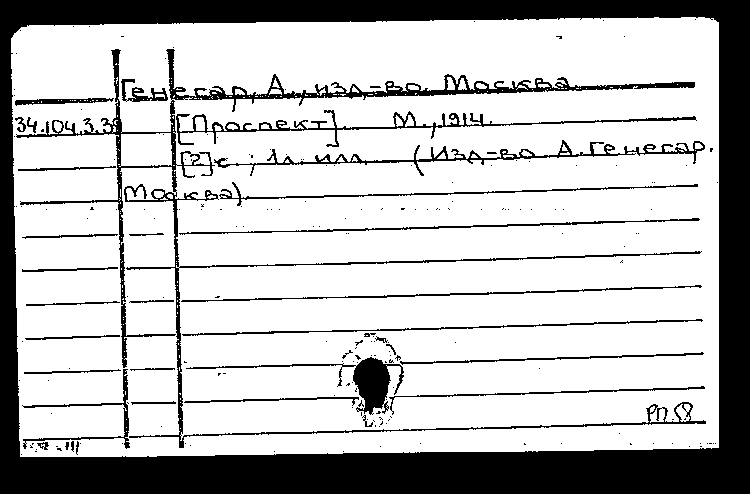 Генесар, А., изд-во. Москва
34.104.3.38 [Проспект]. М., 1914.
[2]с.; 1л. илл. (Изд-во А. Генесар.
Москва).
РП.